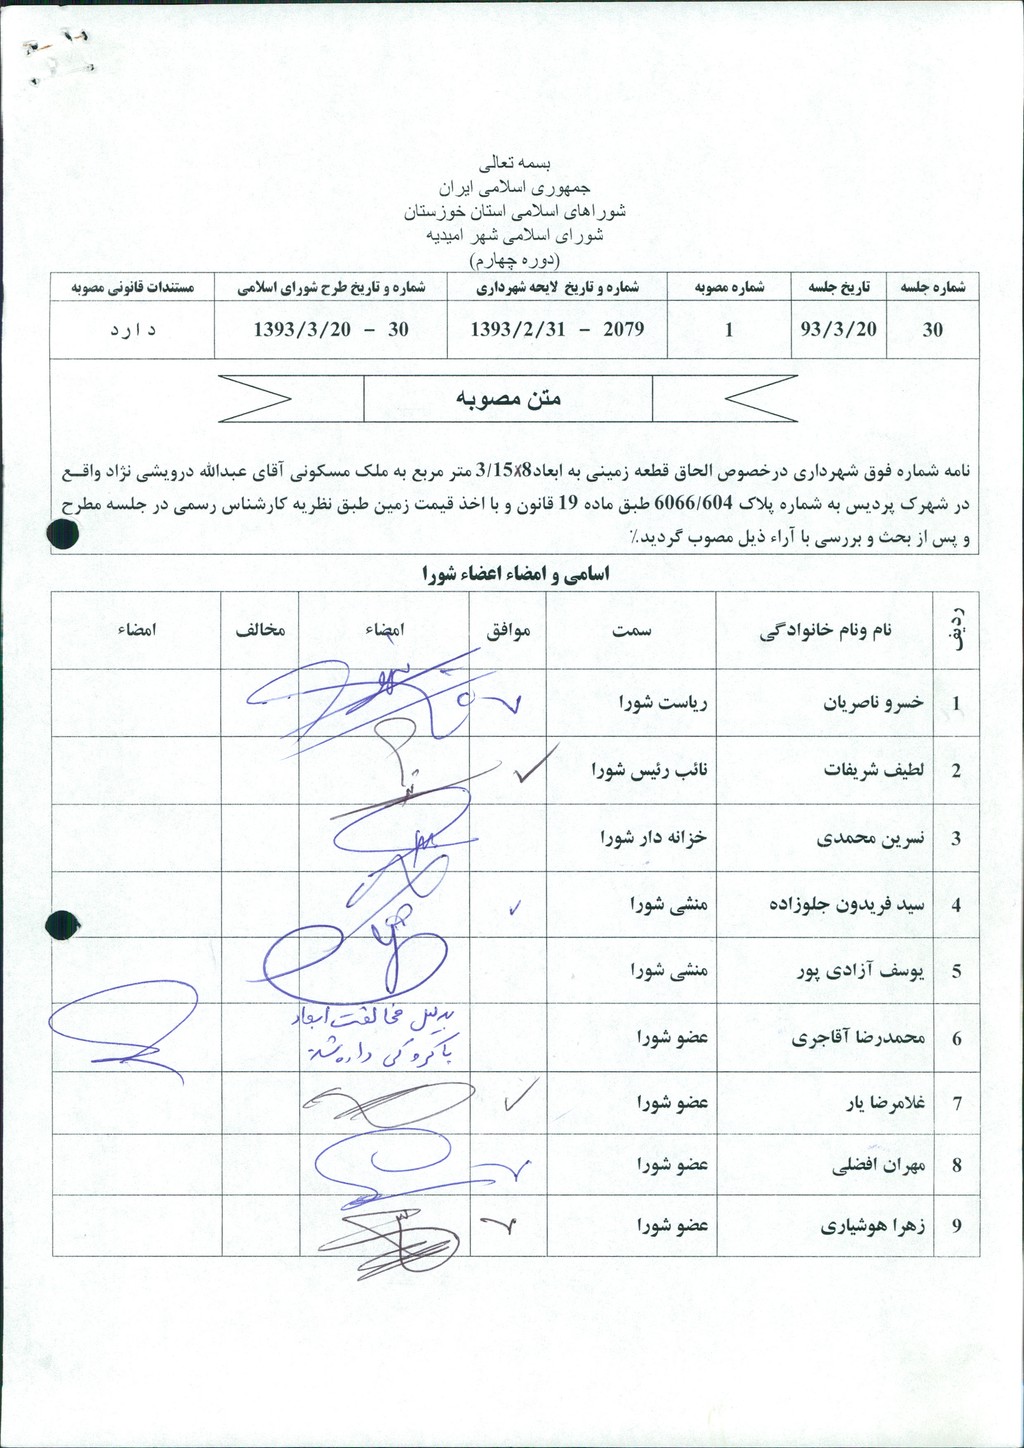 بسمه تعالی
جمهوری اسلامی ایران
شوراهای اسلامی استان خوزستان
شورای اسلامی شهر امیدیه
(دوره چهارم)
شماره جلسه تاریخ جلسه شماره مصوبه شماره و تاریخ لایحه شهرداری شماره و تاریخ طرح شورای اسلامی مستندات قانونی مصوبه
30 93/3/20 1 2079 - 1393/2/31 30 - 1393/3/20 دارد
متن مصوبه
نامه شماره فوق شهرداری درخصوص الحاق قطعه زمینی به ابعاد3/15x8 متر مربع به ملک مسکونی آقای عبدالله درویشی نژاد واقع
در شهرک پردیس به شماره پلاک 6066/604 طبق ماده 19 قانون و با اخذ قیمت زمین طبق نظریه کارشناس رسمی در جلسه مطرح
و پس از بحث و بررسی با آراء ذیل مصوب گردید٪
اسامی و امضاء اعضاء شورا
ردیف نام ونام خانوادگی سمت موافق امضاء مخالف امضاء
1 خسرو ناصریان ریاست شورا
2 لطیف شریفات نائب رئیس شورا ✓
3 نسرین محمدی خزانه دار شورا
4 سید فریدون جلوزاده منشی شورا ✓
5 یوسف آزادی پور منشی شورا
6 محمدرضا آقاجری عضو شورا مخالفت ابعاد
7 غلامرضا یار عضو شورا ✓
8 مهران افضلی عضو شورا
9 زهرا هوشیاری عضو شورا